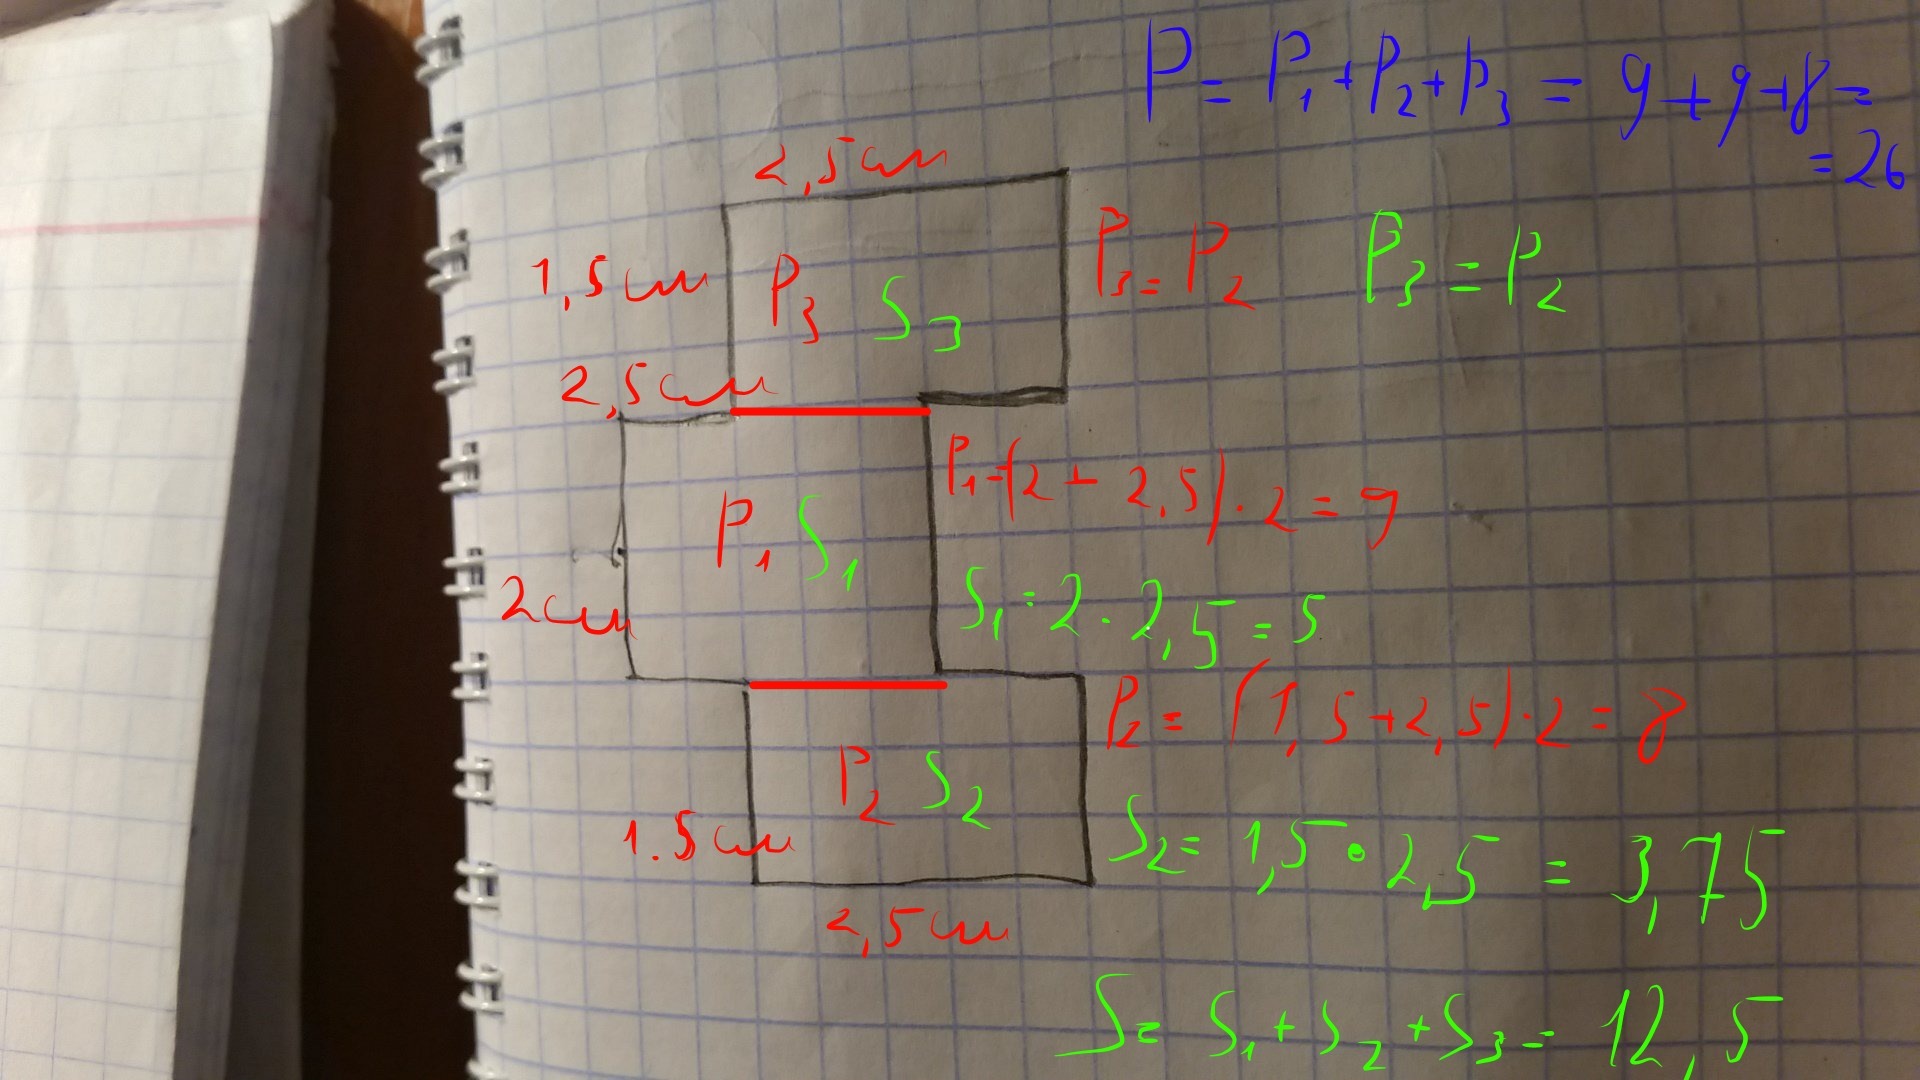 P = P1 + P2 + P3 = 9 + 9 + 8 =
= 26
2,5 см
1,5 см
P3 S3
P3 = P2
P3 = P2
2,5 см
P1 = (2 + 2,5) · 2 = 9
P1 S1
2 см
S1 = 2 · 2,5 = 5
P2 = (1,5 + 2,5) · 2 = 8
P2 S2
1.5 см
S2 = 1,5 · 2,5 = 3,75
2,5 см
S = S1 + S2 + S3 = 12,5